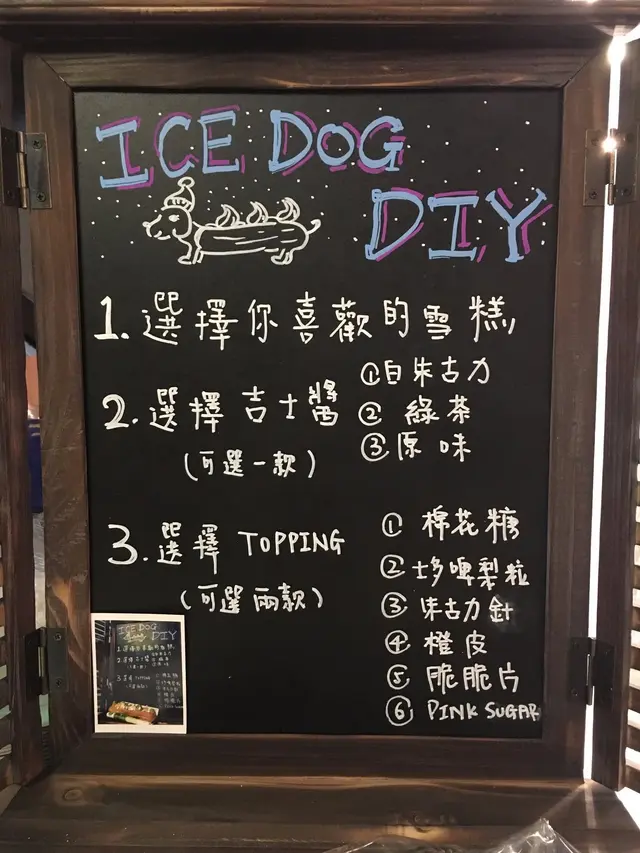 ICE DOG
DIY
1. 選擇你喜歡的雪糕,
2. 選擇 吉士醬
(可選一款)
①白朱古力
② 綠茶
③原味
3. 選擇 TOPPING
(可選兩款)
① 棉花糖
②士多啤梨粒
③ 朱古力針
④ 橙皮
⑤ 脆脆片
⑥ PINK SUGAR
ICE DOG
DIY